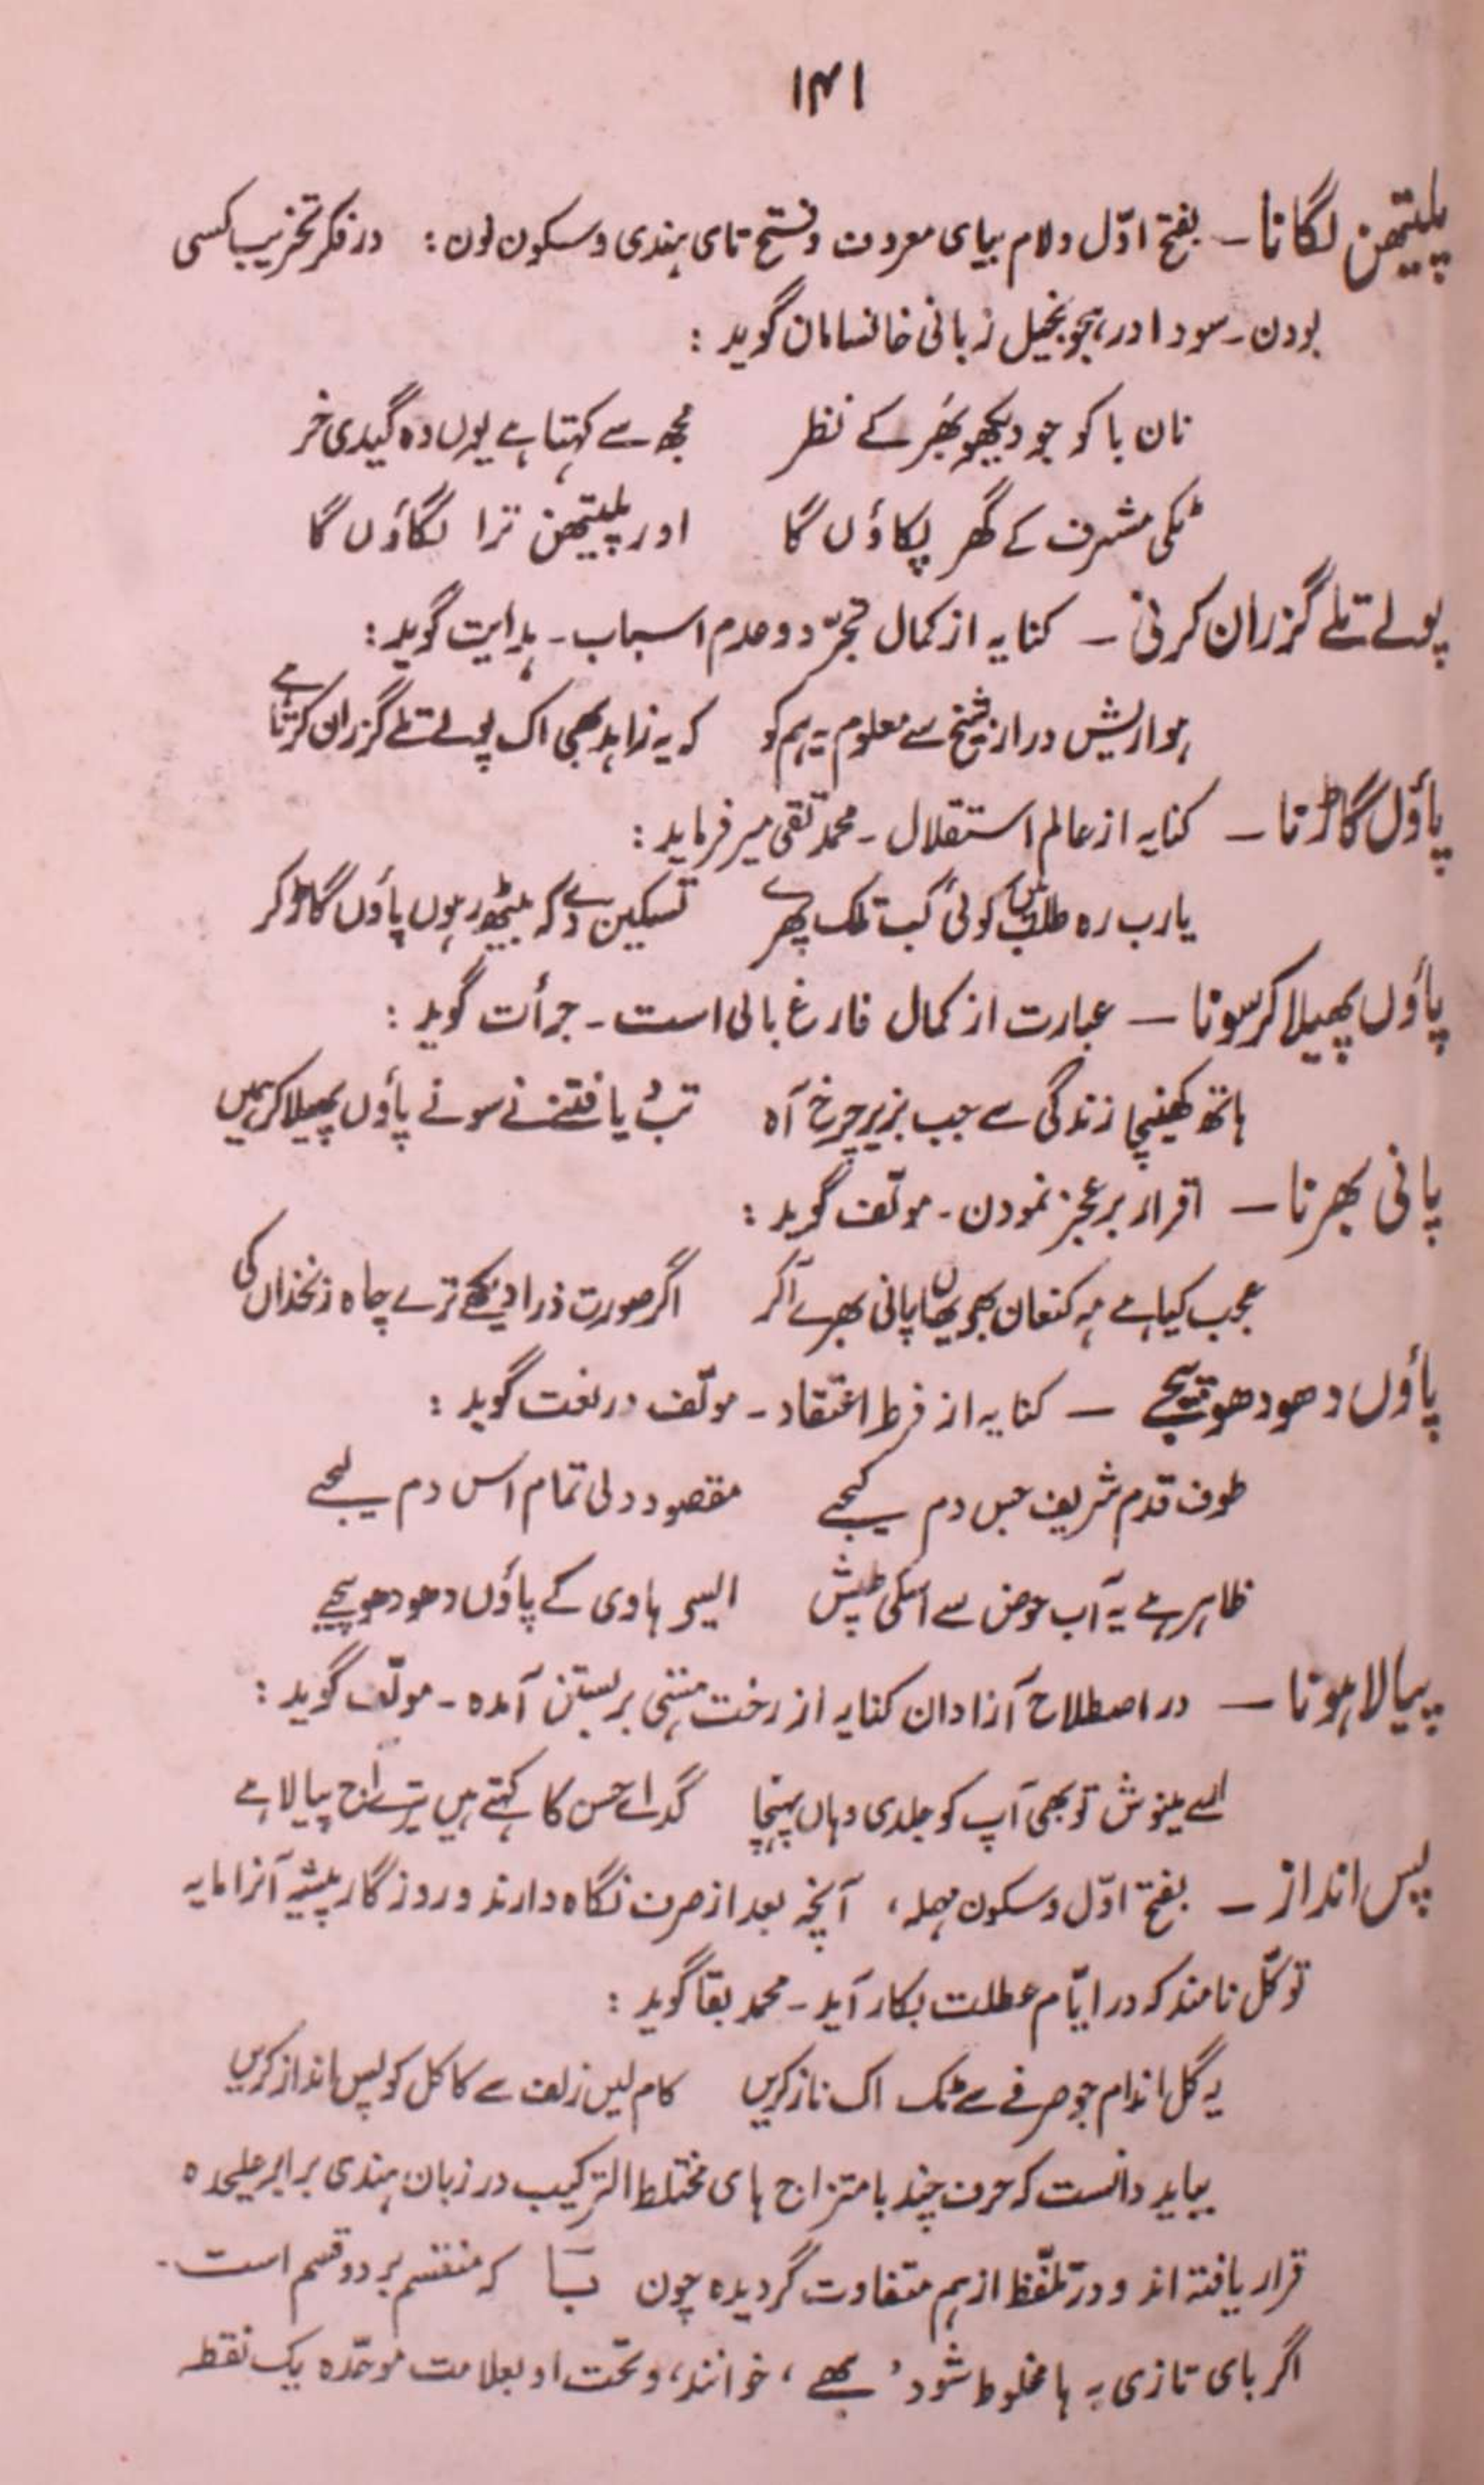 ۱۴۱
پلیتھن لگانا — بفتح اوّل و لام بیای معروف و فتح تای ہندی و سکون نون : در فکر تخریب کسی
بودن ۔ سودا در ہجو بخیل زبانی خانساماں گوید :
نان با کو جو دیکھو بھر کے نظر    مجھ سے کہتا ہے یوں وہ گیدی خر
ٹکی مشرف کے گھر پکاؤں گا    اور پلیتھن ترا لگاؤں گا
پولے تلے گزران کرنی — کنایہ از کمال تجرّد و عدم اسباب ۔ ہدایت گوید :
ہوا ریش دراز شیخ سے معلوم یہ ہم کو    کہ یہ زاہد بھی اک پولے تلے گزران کرتا ہے
پاؤں گاڑنا — کنایہ از عالم استقلال ۔ محمد تقی میر فرماید :
یا رب رہ طلب میں کوئی کب تلک پھرے    تسکین دے کہ بیٹھ رہوں پاؤں گاڑ کر
پاؤں پھیلا کر سونا — عبارت از کمال فارغ بالی است ۔ جرأت گوید :
ہاتھ کھینچا زندگی سے جب بزیر چرخ آہ    تب دیا فتنے نے سونے پاؤں پھیلا کر ہمیں
پانی بھرنا — اقرار بر عجز نمودن ۔ مولّف گوید :
عجب کیا ہے مہ کنعان بھی یہاں پانی بھرے آ کر    اگر صورت ذرا دیکھے ترے چاہ زنخداں کی
پاؤں دھو دھو پیجے — کنایہ از فرط اعتقاد ۔ مولّف در نعت گوید :
طوف قدم شریف جس دم کیجے    مقصود دلی تمام اس دم لیجے
ظاہر ہے یہ آب حوض سے اسکی طپش    ایسے ہادی کے پاؤں دھو دھو پیجے
پیالا ہونا — در اصطلاح آزادان کنایہ از رخت ہستی بر بستن آمدہ ۔ مولّف گوید :
اے مینوش تو بھی آپ کو جلدی وہاں پہنچا    گداے حسن کا کہتے ہیں تیرے آج پیالا ہے
پس انداز — بفتح اوّل و سکون مہملہ، آنچہ بعد از صرف نگاہ دارند و روزگار پیشہ آنرا مایہ
توکّل نامند کہ در ایّام عطلت بکار آید ۔ محمد بقا گوید :
یہ گل اندام جو صرفے سے ٹک اک ناز کریں    کام لیں زلف سے کاکل کو پس انداز کریں
بباید دانست کہ حرف چند بامتزاج ہای مختلط الترکیب در زبان ہندی برابر علیحدہ
قرار یافتہ اند و در تلفّظ از ہم متفاوت گردیدہ چون بٓا کہ منقسم بر دو قسم است ۔
اگر بای تازی بہ ہا مخلوط شود ' بھے ' خوانند، و تحت او بعلامت موحّدہ یک نقطہ